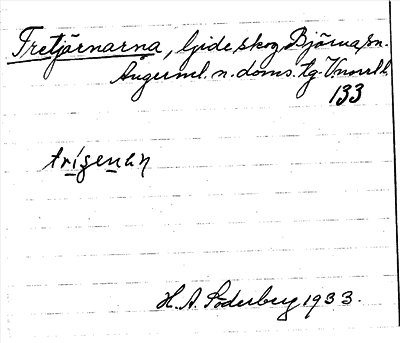 Tretjärnarna, Gideå skog Björna sn.
Ångerml. n. doms. tg. Vnorrl l.
133
trigenan
H. A. Söderberg 1933.